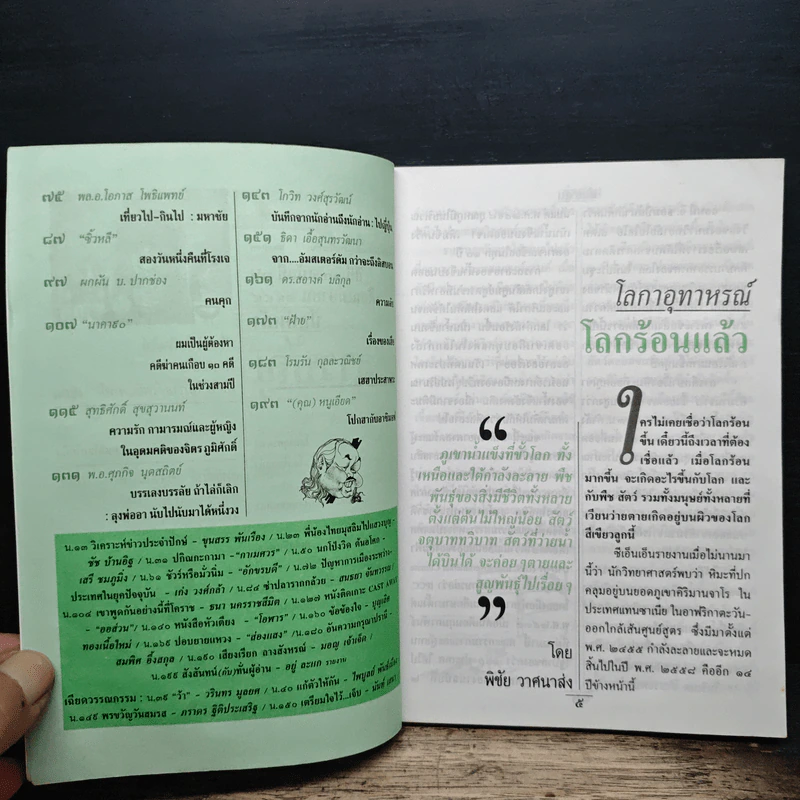 ๗๕ พล.อ.โอภาส โพธิแพทย์
เที่ยวไป-กินไป : มหาชัย
๘๗ "ซิ้วหลี"
สองวันหนึ่งคืนที่โรงเจ
๙๗ ผกผัน บ. ปากช่อง
คนคุก
๑๐๗ "นาคา๙๐"
ผมเป็นผู้ต้องหา
คดีฆ่าคนเกือบ ๑๐ คดี
ในช่วงสามปี
๑๑๕ สุทธิศักดิ์ สุขสุวานนท์
ความรัก กามารมณ์และผู้หญิง
ในอุดมคติของจิตร ภูมิศักดิ์
๑๓๑ พ.อ.ศุภกิจ นุตสถิตย์
บรรเลงบรรลัย ถ้าไล่ก็เลิก
: ลุงพ่ออา นับไปนับมาได้หนึ่งวง
๑๔๓ โกวิท วงศ์สุรวัฒน์
บันทึกจากนักอ่านถึงนักอ่าน : ไปญี่ปุ่น
๑๕๑ ธิดา เอื้อสุนทรวัฒนา
จาก....อัมสเตอร์ดัม กว่าจะถึง
๑๖๑ ดร.สอางค์ มลิกุล
๑๗๓ "ฝ้าย"
เรื่องของ
๑๘๓ โรมรัน กุลละวณิชย์
เฮฮาประสา
๑๙๓ "(คุณ) หนูเอียด"
น.๑๓ วิเคราะห์ข่าวประจำปักษ์ - ขุนสรร พันเรือง / น.๒๓ พี่น้องไทยมุสลิมไปแสวงบุญ -
ชัช บ้านอิฐ / น.๓๑ ปกิณกะกามา - "กาเมศวร" / น.๕๐ นกโป่งวิด ต้นอโศก -
เสรี ชมภูมิ่ง / น.๖๑ ชัวร์หรือมั่วนิ่ม - "อักขรบดี" / น.๗๒ ปัญหาการเมืองระหว่าง
ประเทศในยุคปัจจุบัน - เก่ง วงศ์กล้า / น.๘๔ ซาปลารากกล้วย - สนธยา
น.๑๐๔ เขาพูดกันอย่างนี้ที่โคราช - ธนา นครราชสีมิต / น.๑๒๗ หนังติดเกาะ CAST AWAY
- "ออส่วน" / น.๑๔๐ หนังสือหัวเตียง - "โอพาร" / น.๑๖๐ ข้อข้องใจ - บุญเลิศ
ทองเนื้อใหม่ / น.๑๖๙ ปอบยายแหวง - "ส่องแสง" / น.๑๘๐ อันความกรุณาปรานี -
สมพิศ อึ้งสกุล / น.๑๙๐ เสียงเรียก กางสังหรณ์ - มอญ เจ้าเจ็ด /
น.๑๙๙ สังสันทน์(กับ)ท่านผู้อ่าน - อยู่ ละแก รายงาน
เฉียดวรรณกรรม : น.๓๙ "ร้า" - วรินทร มูลยศ / น.๔๐ แก้ตัวให้กัน - ไพบูลย์
น.๑๔๙ พรขวัญวันสมรส - ภราดร ฐิติประเสริฐ / น.๑๕๐ เตรียมใจไว้...เจ็บ -
โลกาอุทาหรณ์
โลกร้อนแล้ว
"
ภูเขาน้ำแข็งที่ขั้วโลก ทั้ง
เหนือและใต้กำลังละลาย พืช
พันธุ์ของสิ่งมีชีวิตทั้งหลาย
ตั้งแต่ต้นไม้ใหญ่น้อย สัตว์
จตุบาททวิบาท สัตว์ที่ว่ายน้ำ
ได้บินได้ จะค่อยๆ ตายและ
สูญพันธุ์ไปเรื่อยๆ
"
โดย
พิชัย วาศนาส่ง
ใครไม่เคยเชื่อว่าโลกร้อน
ขึ้น เดี๋ยวนี้ถึงเวลาที่ต้อง
เชื่อแล้ว เมื่อโลกร้อน
มากขึ้น จะเกิดอะไรขึ้นกับโลก และ
กับพืช สัตว์ รวมทั้งมนุษย์ทั้งหลายที่
เวียนว่ายตายเกิดอยู่บนผิวของโลก
สีเขียวลูกนี้
ซีเอ็นเอ็นรายงานเมื่อไม่นานมา
นี้ว่า นักวิทยาศาสตร์พบว่า หิมะที่ปก
คลุมอยู่บนยอดภูเขาคิริมานจาโร ใน
ประเทศแทนซาเนีย ในอาฟริกาตะวัน-
ออกใกล้เส้นศูนย์สูตร ซึ่งมีมาตั้งแต่
พ.ศ. ๒๔๕๕ กำลังละลายและจะหมด
สิ้นไปในปี พ.ศ. ๒๕๕๘ คืออีก ๑๔
ปีข้างหน้านี้
๕